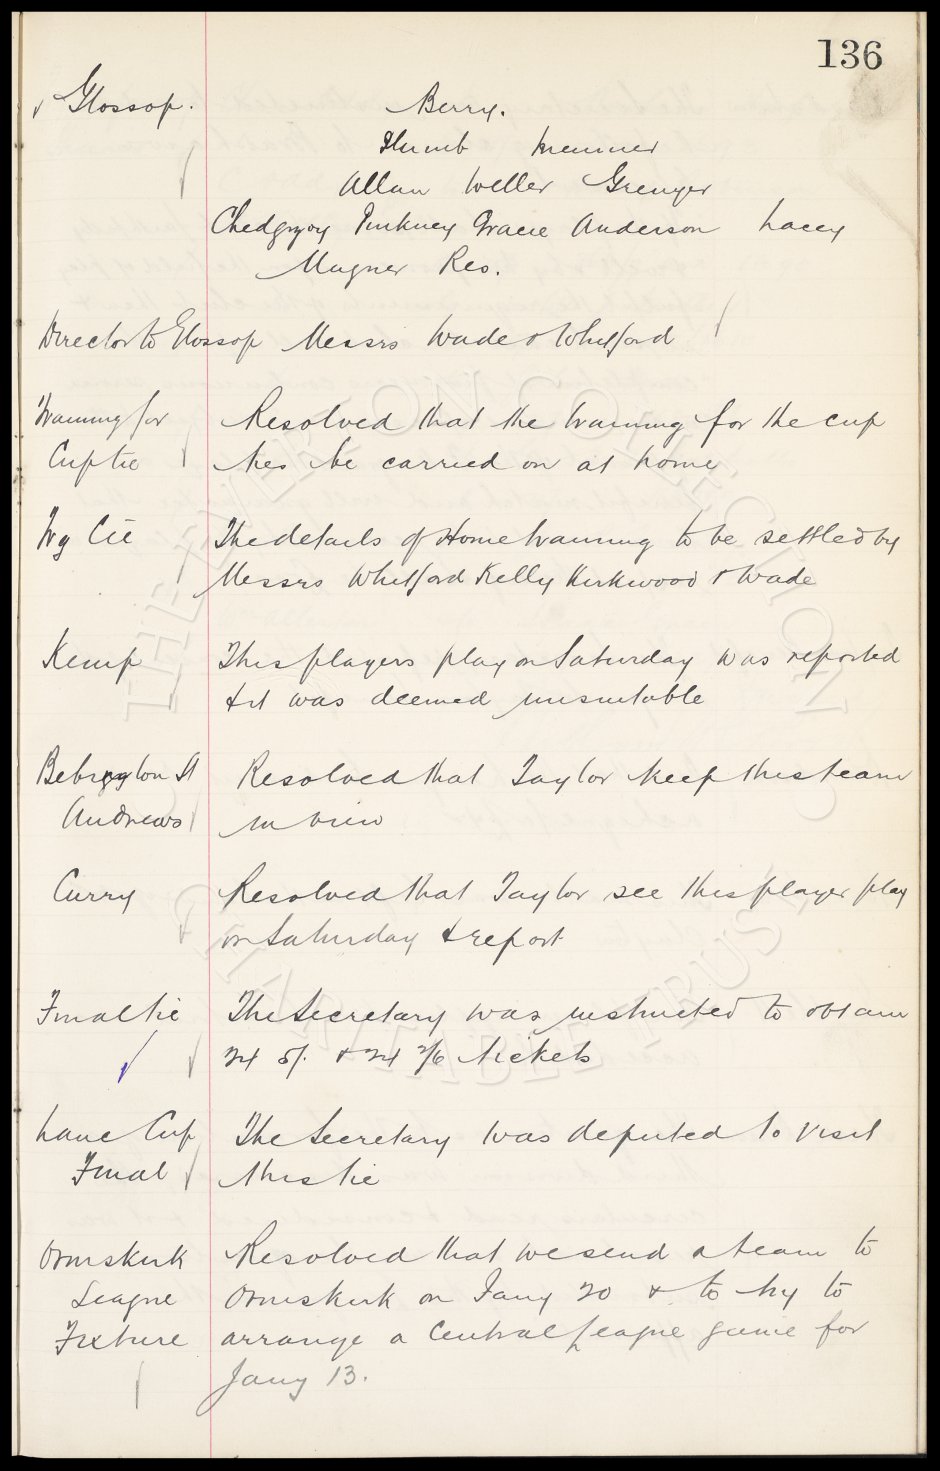 136
Glossop. Berry.
Stumb
Allan Weller Grenyer
Chedgzoy Pinkney Gracie Anderson Lacey
Magner Res.
Director to Glossop Messrs Wade & Whitford
Training for Resolved that the training for the cup
Cup tie ties be carried on at home
Trg Ctē The details of Home training to be settled by
Messrs Whitford Kelly Kirkwood & Wade
Kemp This players play on Saturday was reported
& it was deemed unsuitable
Bebington St Resolved that Taylor keep this team
Andrews in view
Curry Resolved that Taylor see this player play
on Saturday & report
Final tie The Secretary was instructed to obtain
24 5/- & 24 2/6 tickets
Lanc Cup The Secretary was deputed to visit
Final this tie
Ormskirk Resolved that we send a team to
League Ormskirk on Jany 20 & to try to
Fixture arrange a Central League game for
Jany 13.
THE EVERTON COLLECTION
CHARITABLE TRUST